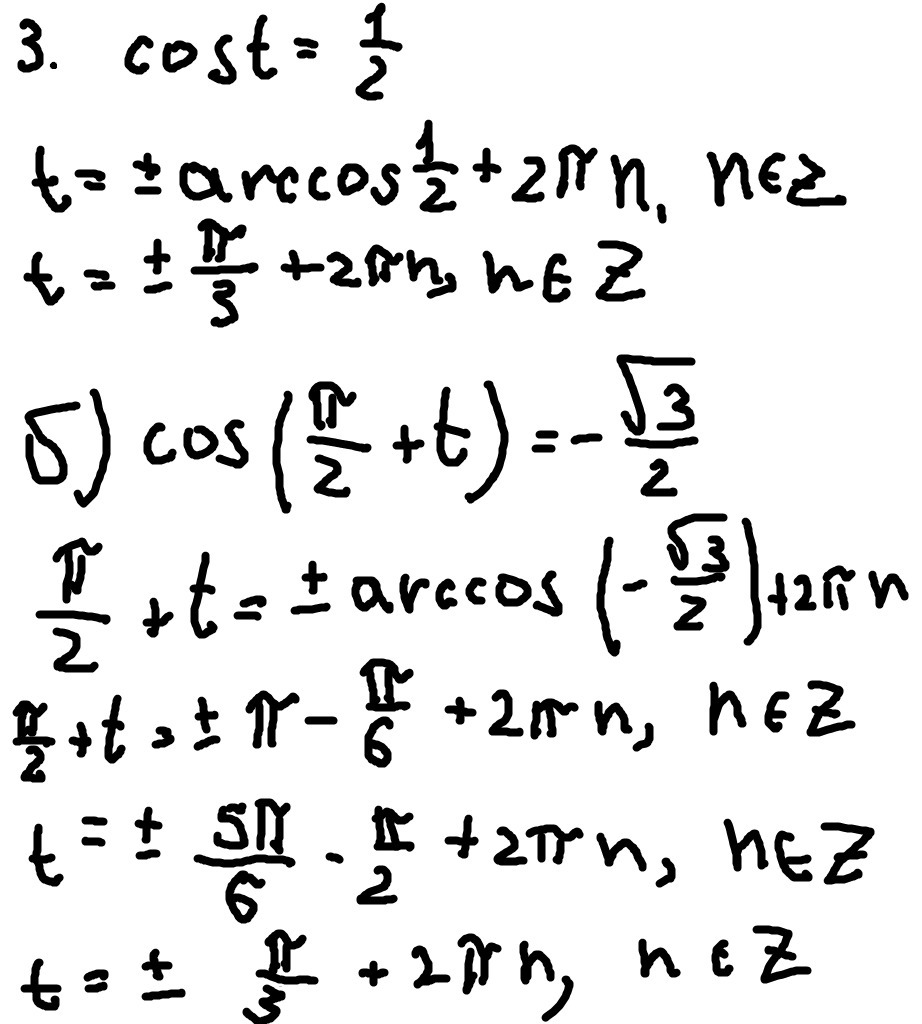 3. cos t = 1/2
t = ± arccos 1/2 + 2πn, n∈Z
t = ± π/3 + 2πn, n∈Z
б) cos(π/2 + t) = -√3/2
π/2 + t = ± arccos(-√3/2) + 2πn
π/2 + t = ± π - π/6 + 2πn, n∈Z
t = ± 5π/6 - π/2 + 2πn, n∈Z
t = ± π/3 + 2πn, n∈Z